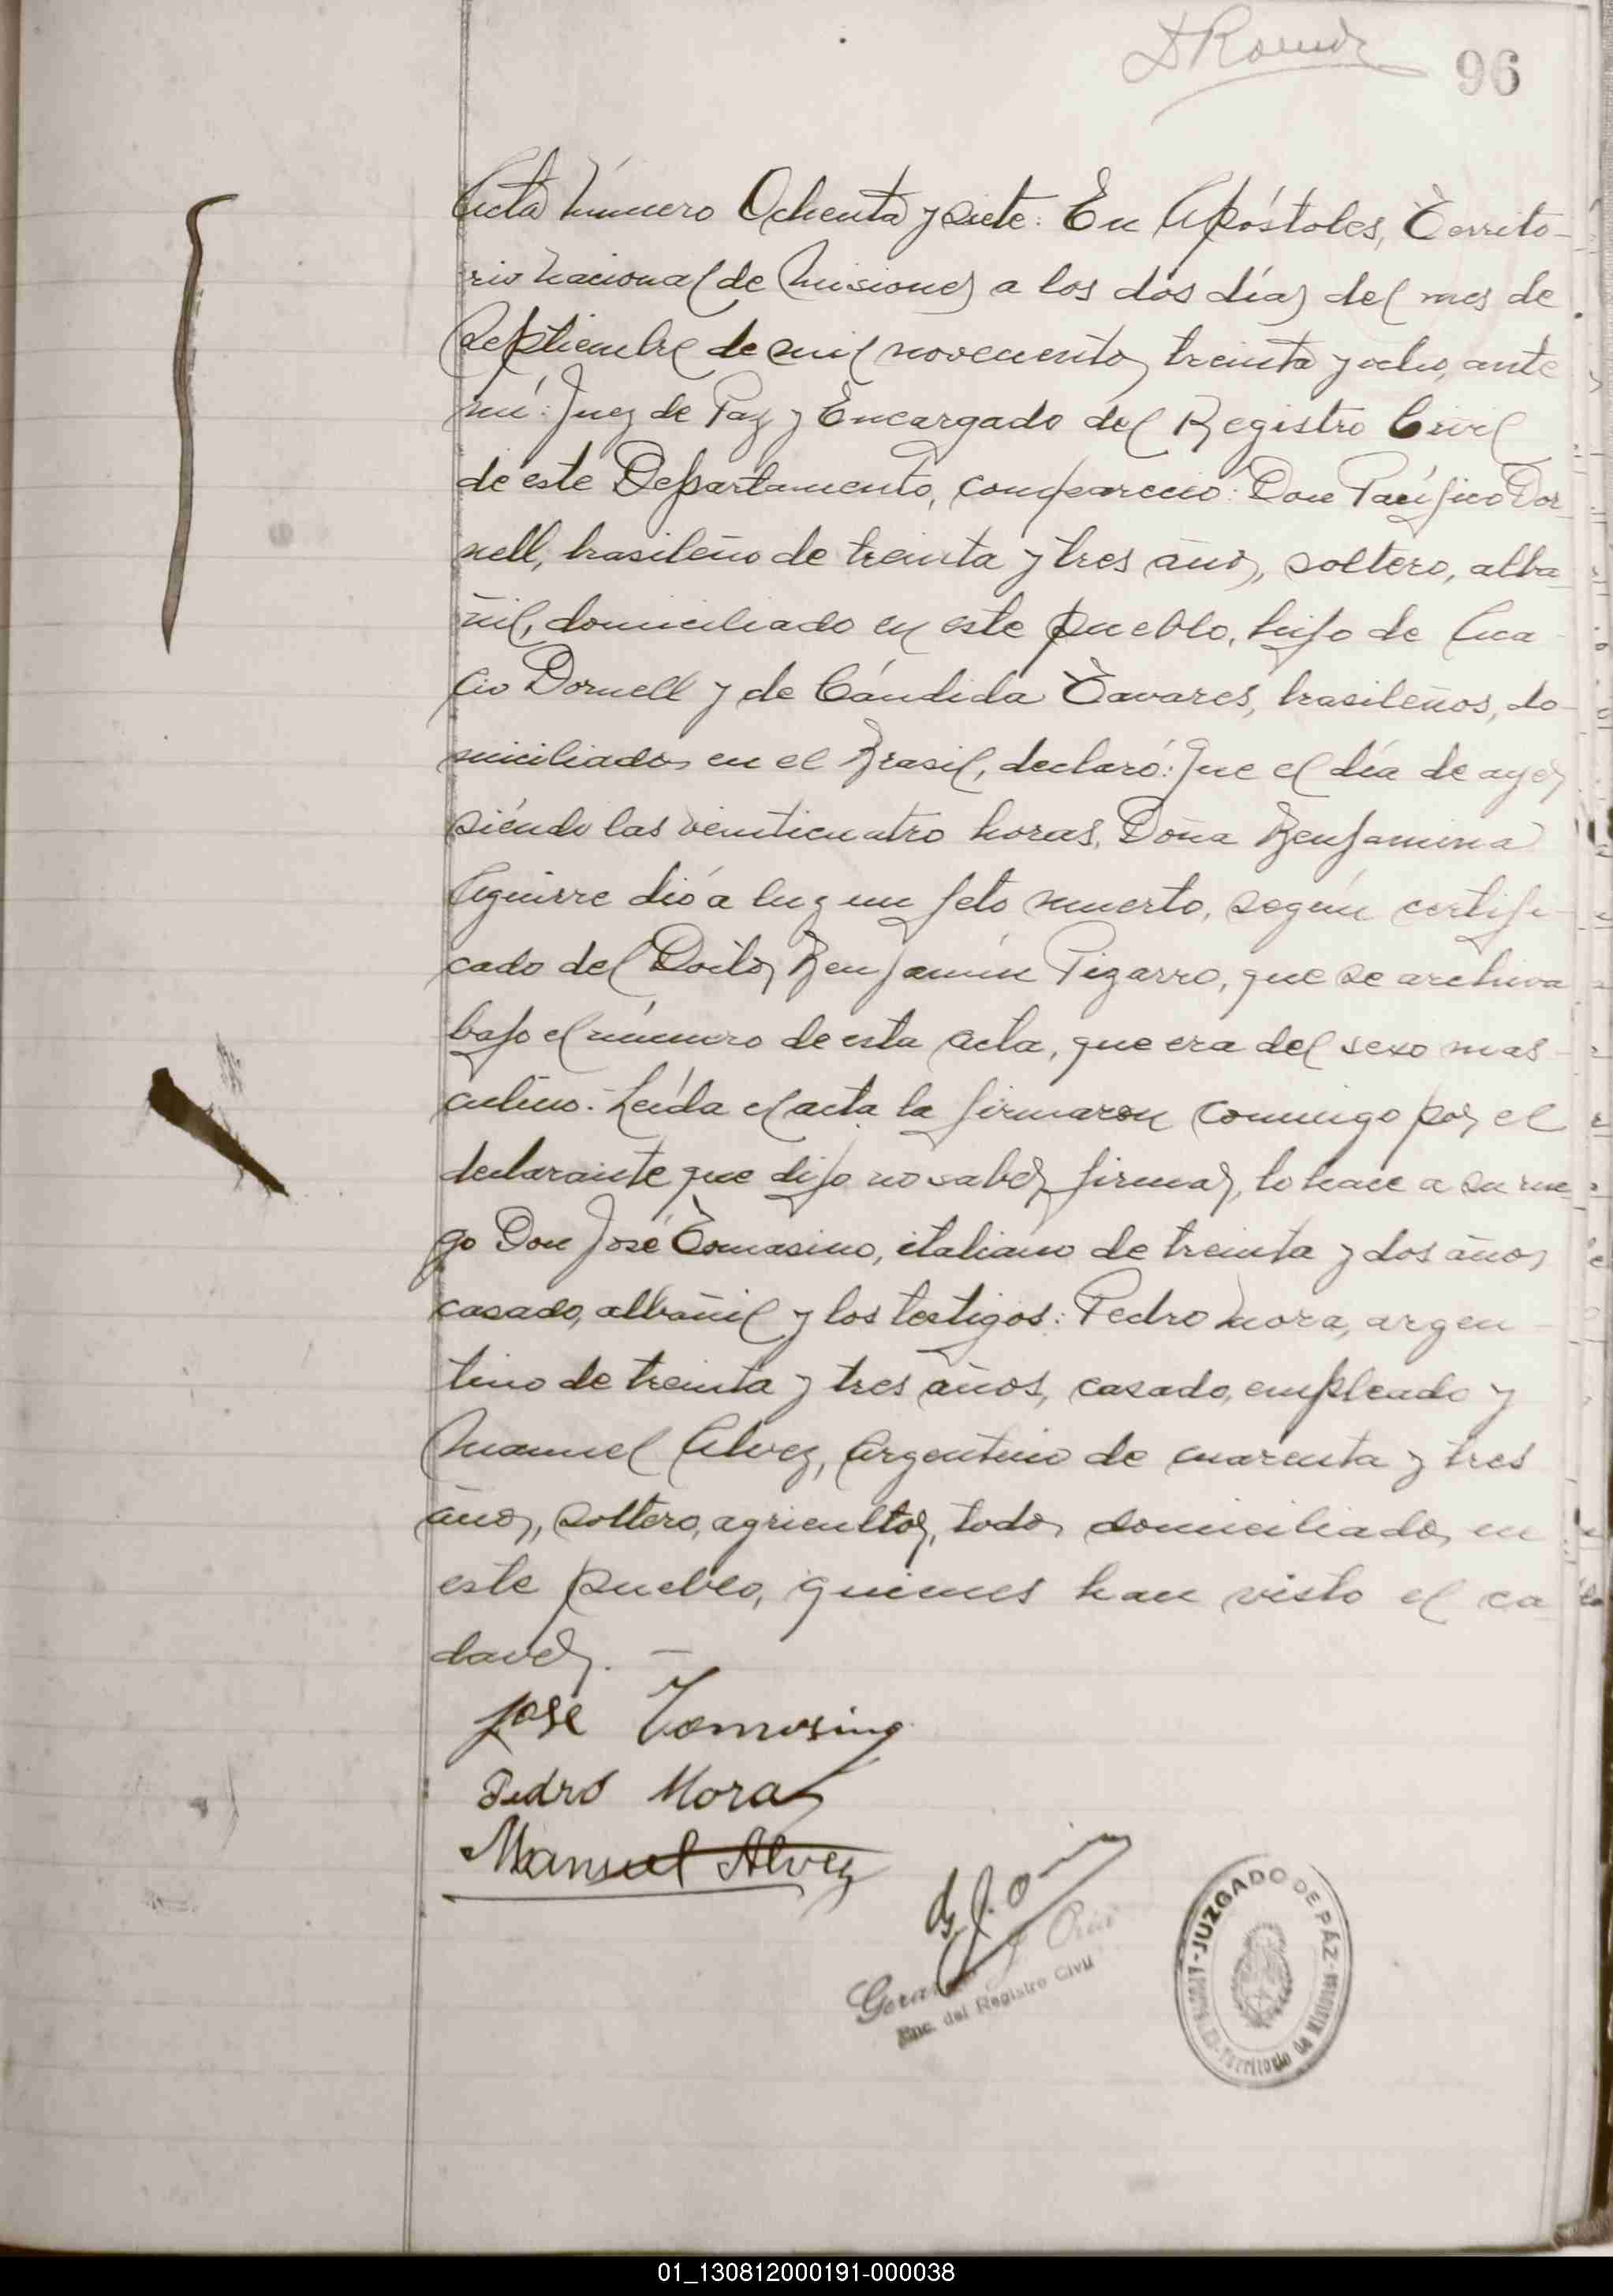 96
Acta Número Ochenta y siete: En Apóstoles, Territo-
rio Nacional de Misiones a los dos días del mes de
Septiembre de mil novecientos treinta y ocho, ante
mí: Juez de Paz y Encargado del Registro Civil
de este Departamento, compareció: Don Pacífico Dor
nell, brasileño de treinta y tres años, soltero, alba
ñil, domiciliado en este pueblo, hijo de Aca
cio Dornell y de Cándida Tavares, brasileños, do-
miciliados en el Brasil, declaró: Que el día de ayer
siéndo las veinticuatro horas, Doña Benjamina
Aguirre dió a luz un feto muerto, según certifi-
cado del Doctor Benjamín Pizarro, que se archiva
bajo el número de esta acta, que era del sexo mas-
culino. Leída el acta la firmaron conmigo por el
declarante que dijo no saber firmar, lo hace a su rue
go Don José Tomasino, italiano de treinta y dos años
casado, albañil y los testigos: Pedro Mora, argen-
tino de treinta y tres años, casado, empleado y
Manuel Alvez, Argentino de cuarenta y tres
años, soltero, agricultor, todos domiciliados en
este pueblo, quienes han visto el ca
daver. —
Jose Tomasino
Pedro Mora
Manuel Alvez
Enc. del Registro Civil
JUZGADO DE PÁZ
Territorio de Misiones
01_130812000191-000038